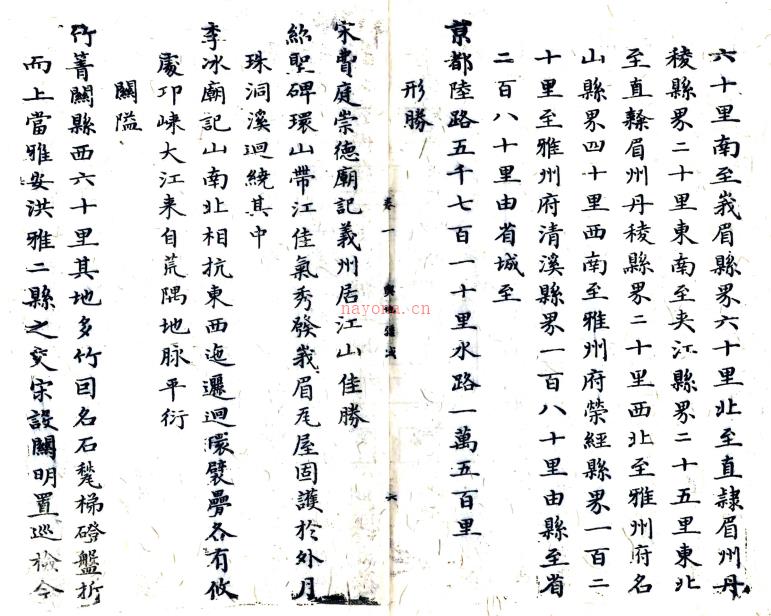 六十里南至峩眉縣界六十里北至直隷眉州丹
稜縣界二十里東南至夾江縣界二十五里東北
至直隷眉州丹稜縣界二十里西北至雅州府名
山縣界四十里西南至雅州府榮經縣界一百二
十里至雅州府清溪縣界一百八十里由縣至省
二百八十里由省城至
京都陸路五千七百一十里水路一萬五百里
形勝
宋費庭崇德廟記義州居江山佳勝
紹聖碑環山帶江佳氣秀發峩眉瓦屋固護於外月
珠洞溪迴繞其中
李冰廟記山南北相抗東西迤邐迴環襞疊各有攸
處卭崍大江来自荒隅地脉平衍
關隘
竹箐關縣西六十里其地多竹囙名石甃梯磴盤折
而上當雅安洪雅二縣之交宋設關明置巡檢今
卷一
六
nayona.cn